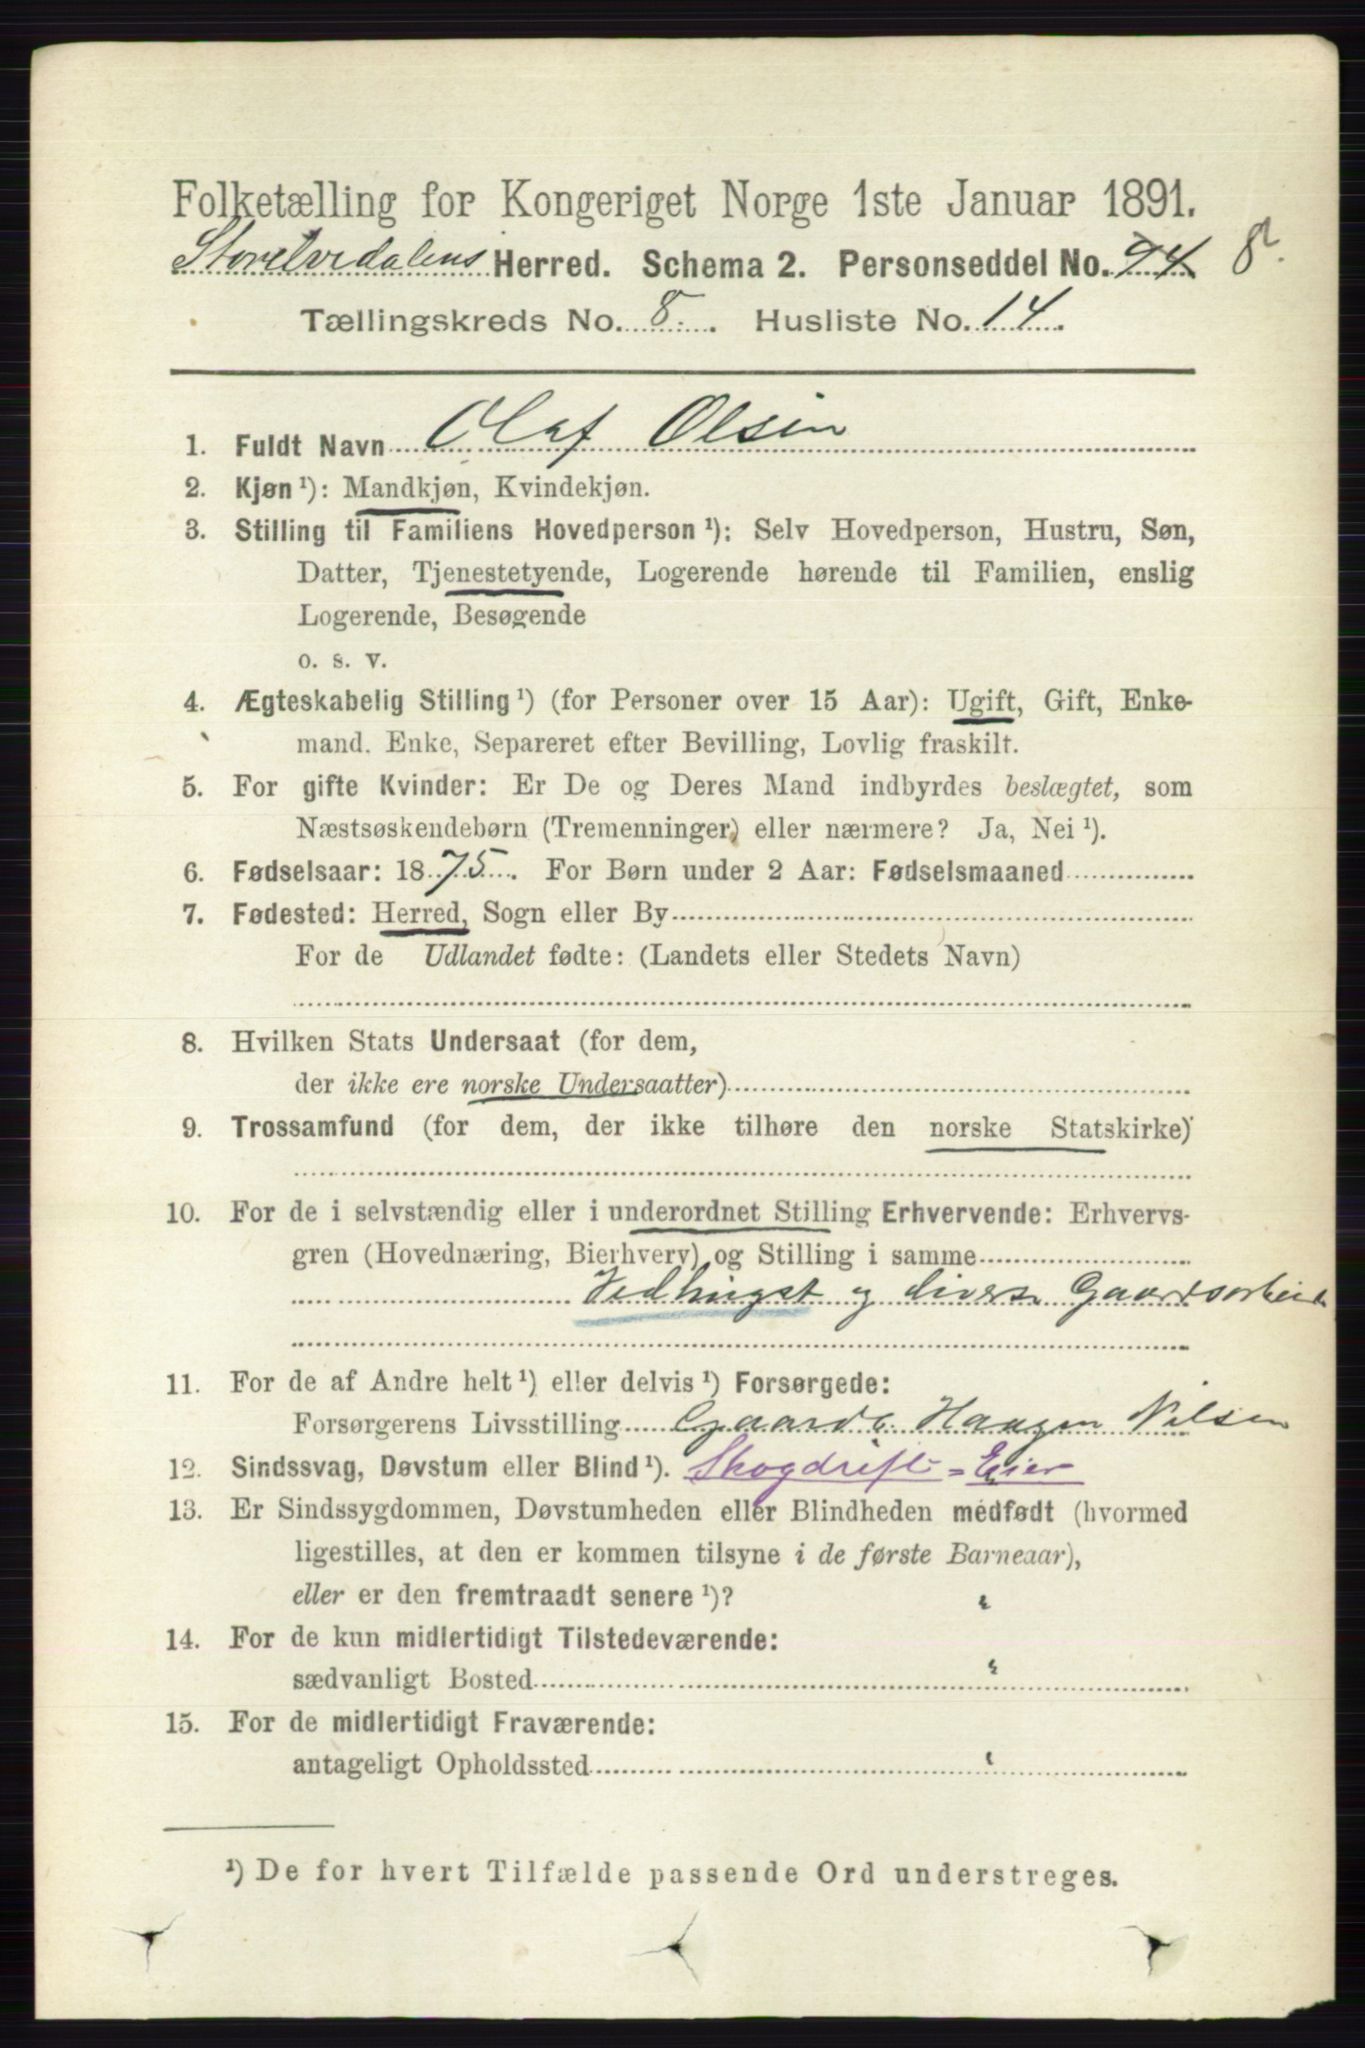 Folketælling for Kongeriget Norge 1ste Januar 1891.
Storelvedalens Herred. Schema 2. Personseddel No. 94 82
Tællingskreds No. 8. Husliste No. 14.
1. Fuldt Navn Olaf Olsen
2. Kjøn ¹): Mandkjøn, Kvindekjøn.
3. Stilling til Familiens Hovedperson ¹): Selv Hovedperson, Hustru, Søn,
Datter, Tjenestetyende, Logerende hørende til Familien, enslig
Logerende, Besøgende
o. s. v.
4. Ægteskabelig Stilling ¹) (for Personer over 15 Aar): Ugift, Gift, Enke-
mand. Enke, Separeret efter Bevilling, Lovlig fraskilt.
5. For gifte Kvinder: Er De og Deres Mand indbyrdes beslægtet, som
Næstsøskendebørn (Tremenninger) eller nærmere? Ja, Nei ¹).
6. Fødselsaar: 1875. For Børn under 2 Aar: Fødselsmaaned
7. Fødested: Herred, Sogn eller By
For de Udlandet fødte: (Landets eller Stedets Navn)
8. Hvilken Stats Undersaat (for dem,
der ikke ere norske Undersaatter)
9. Trossamfund (for dem, der ikke tilhøre den norske Statskirke)
10. For de i selvstændig eller i underordnet Stilling Erhvervende: Erhvervs-
gren (Hovednæring, Bierhverv) og Stilling i samme
Vedhugst og divers Gaardsarbeide
11. For de af Andre helt ¹) eller delvis ¹) Forsørgede:
Forsørgerens Livsstilling Gaardb. Haagen Nilsen
12. Sindssvag, Døvstum eller Blind ¹). Skogdrift = Eier
13. Er Sindssygdommen, Døvstumheden eller Blindheden medfødt (hvormed
ligestilles, at den er kommen tilsyne i de første Barneaar),
eller er den fremtraadt senere ¹)? "
14. For de kun midlertidigt Tilstedeværende:
sædvanligt Bosted "
15. For de midlertidigt Fraværende:
antageligt Opholdssted "
¹) De for hvert Tilfælde passende Ord understreges.